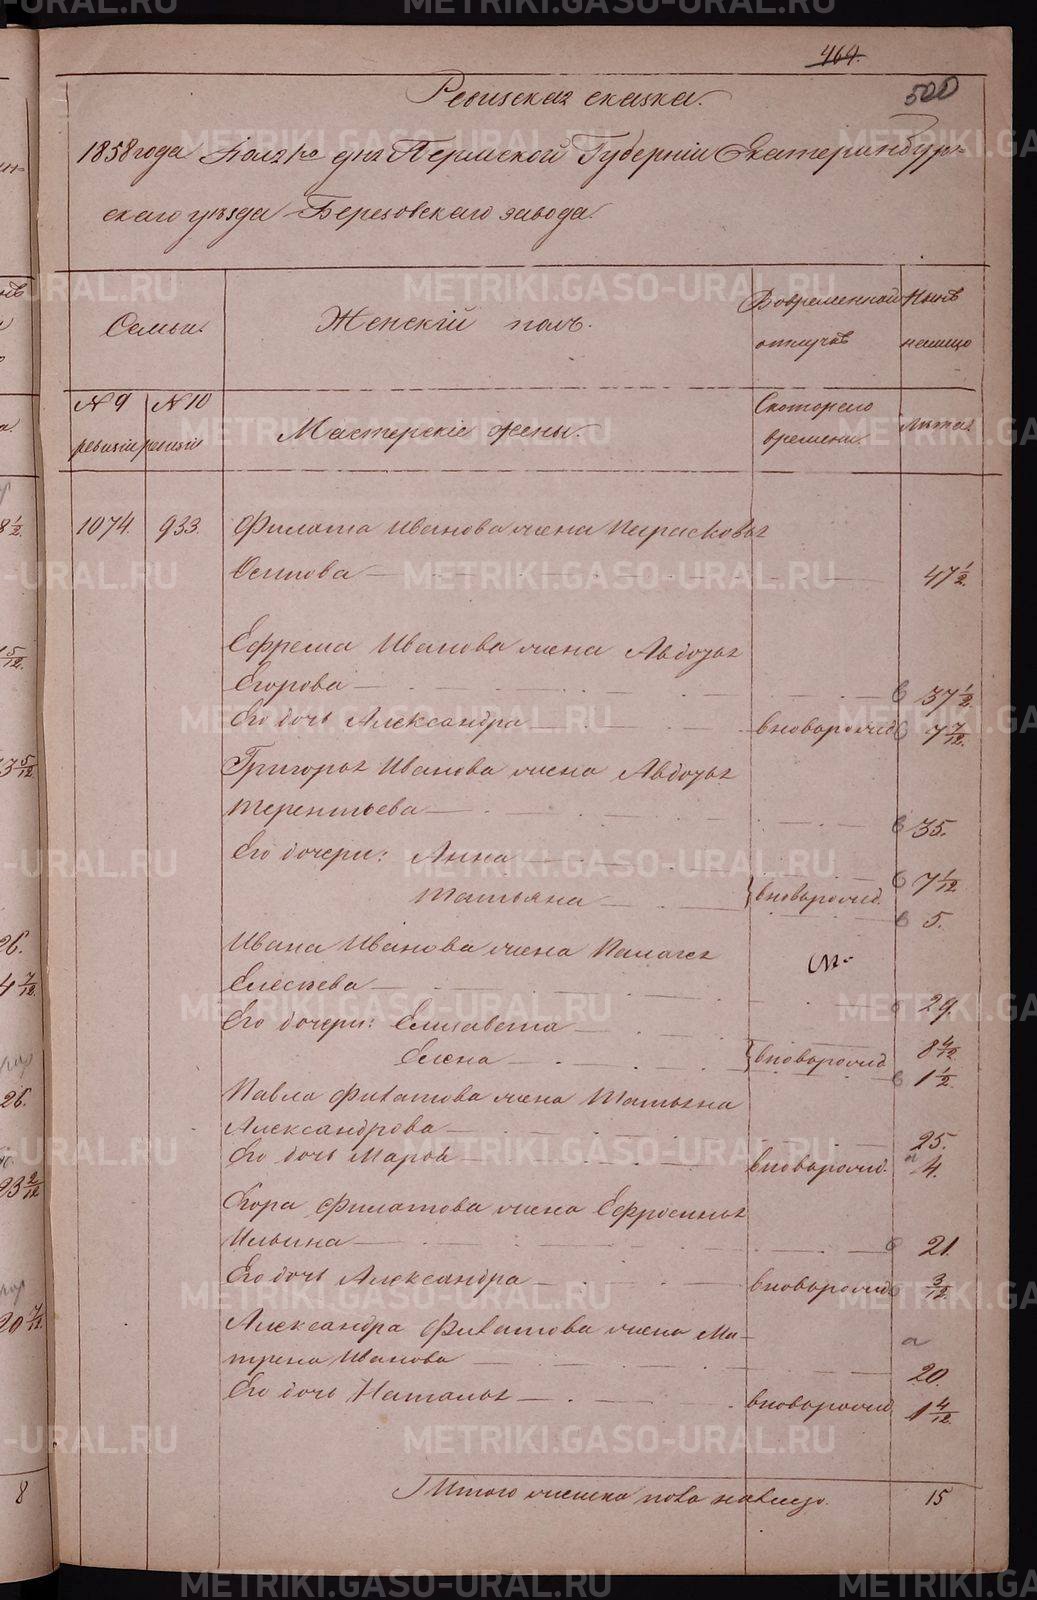 464.
500
Ревизская сказка.
1858 года дня Пермской Губерніи Екатеринбур-
скаго уѣзда Березовскаго завода.
Семьи.
Женскій полъ.
Вовременной отлучкѣ
Нынѣ налицо
№ 9 ревизіи
№ 10 ревизіи
Мастерскіе жены.
Скотораго времени.
Лѣта
1074. 933. Филата Иванова жена Парасковья
Осипова 47 1/2.
Ефрема Иванова жена Авдотья
Егорова 37 1/2.
Его дочь Александра вноворожд 7 7/12.
Григорья Иванова жена Авдотья
Терентьева 35.
Его дочери: Анна 7 1/12
Татьяна вноворожд. 5.
Ивана Иванова жена Палагея
Елесѣева 29.
Его дочери: Елизавета 8 4/12
Елена вноворожд 1 1/2.
Павла Филатова жена Татьяна
Александрова 25.
Его дочь Марфа вноворожд. 4.
Егора Филатова жена Ефросинья
Ильина 21.
Его дочь Александра вноворожд 3/12.
Александра Филатова жена Ма-
трена Иванова 20.
Его дочь Наталья вноворожд 1 4/12.
Итого женска пола налицо. 15
METRIKI.GASO-URAL.RU